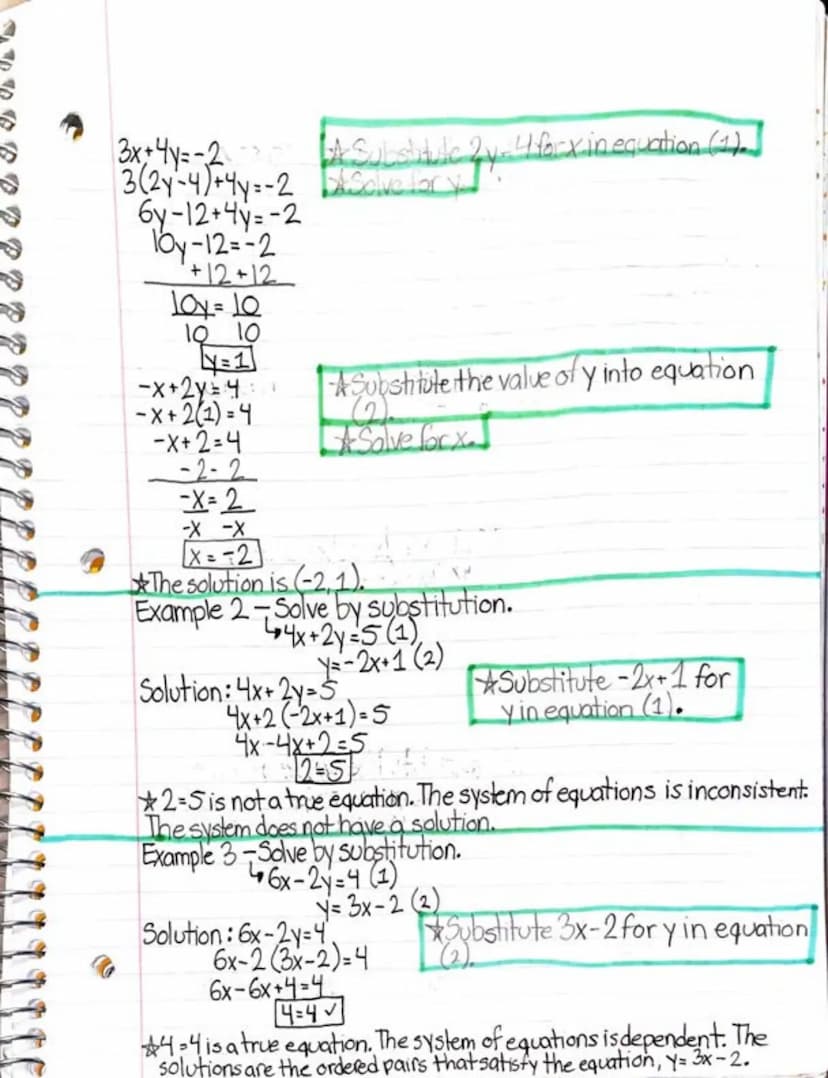 3x+4y=-2
☆Substitute 2y-4 for x in equation (1).
3(2y-4)+4y=-2
☆Solve for y.
6y-12+4y=-2
10y-12=-2
+12 +12
10y = 10
10 10
y=1
-x+2y=4
☆Substitute the value of y into equation
(2).
-x+2(1)=4
-x+2=4
☆Solve for x.
-2 - 2
-x = 2
-x -x
x = -2
☆The solution is (-2,1).
Example 2 - Solve by substitution.
↳4x+2y=5 (1)
y=-2x+1 (2)
Solution: 4x+2y=5
☆Substitute -2x+1 for
y in equation (1).
4x+2(-2x+1)=5
4x-4x+2=5
2=5
☆2=5 is not a true equation. The system of equations is inconsistent.
The system does not have a solution.
Example 3 - Solve by substitution.
↳6x-2y=4 (1)
y= 3x-2 (2)
Solution: 6x-2y=4
☆Substitute 3x-2 for y in equation
(2).
6x-2(3x-2)=4
6x-6x+4=4
4=4 ✓
☆4=4 is a true equation. The system of equations is dependent. The
solutions are the ordered pairs that satisfy the equation, y= 3x-2.